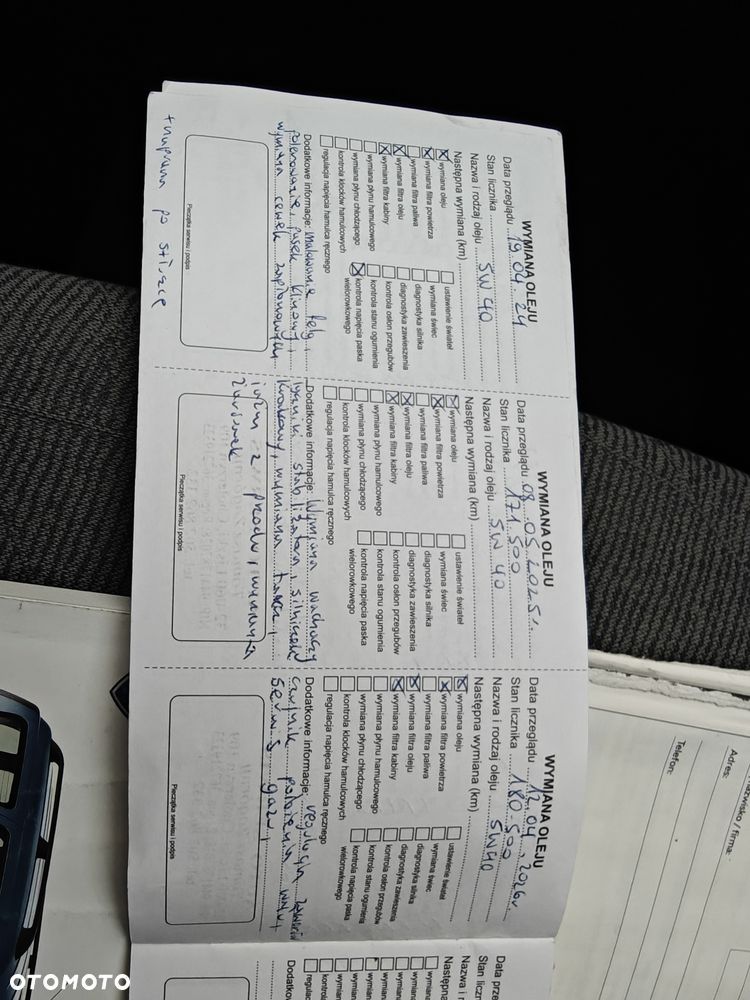 WYMIANA OLEJU
Data przeglądu 19.04.24
Stan licznika
Nazwa i rodzaj oleju 5W40
Następna wymiana (km)
wymiana oleju
wymiana filtra powietrza
wymiana filtra paliwa
wymiana filtra oleju
wymiana filtra kabiny
wymiana płynu hamulcowego
wymiana płynu chłodzącego
kontrola klocków hamulcowych
regulacja napięcia hamulca ręcznego
ustawienie świateł
wymiana świec
diagnostyka silnika
diagnostyka zawieszenia
kontrola osłon przegubów
kontrola stanu ogumienia
kontrola napięcia paska
wielorowkowego
Dodatkowe informacje: malowanie felg,
pasek klinowy,
wymiana cewek zapłonowych
Pieczątka serwisu i podpis
+ naprawa po
WYMIANA OLEJU
Data przeglądu 08.05.2025r.
Stan licznika 171.500
Nazwa i rodzaj oleju 5W40
Następna wymiana (km)
wymiana oleju
wymiana filtra powietrza
wymiana filtra paliwa
wymiana filtra oleju
wymiana filtra kabiny
wymiana płynu hamulcowego
wymiana płynu chłodzącego
kontrola klocków hamulcowych
regulacja napięcia hamulca ręcznego
ustawienie świateł
wymiana świec
diagnostyka silnika
diagnostyka zawieszenia
kontrola osłon przegubów
kontrola stanu ogumienia
kontrola napięcia paska
wielorowkowego
Dodatkowe informacje: Wymiana wahaczy
łączniki stabilizatora, silniczek
krokowy, wymiana tarcz,
z przodu, wymiana
żarówek
Pieczątka serwisu i podpis
WYMIANA OLEJU
Data przeglądu 12.04.2026r.
Stan licznika 180.500
Nazwa i rodzaj oleju 5W40
Następna wymiana (km)
wymiana oleju
wymiana filtra powietrza
wymiana filtra paliwa
wymiana filtra oleju
wymiana filtra kabiny
wymiana płynu hamulcowego
wymiana płynu chłodzącego
kontrola klocków hamulcowych
regulacja napięcia hamulca ręcznego
ustawienie świateł
wymiana świec
diagnostyka silnika
diagnostyka zawieszenia
kontrola osłon przegubów
kontrola stanu ogumienia
kontrola napięcia paska
wielorowkowego
Dodatkowe informacje: regulacja zaworów
czujnik położenia wału,
serwis gazu,
Pieczątka serwisu i podpis
Data prz
Stan licz
Nazwa i r
Następna
wymiana
wymiana
wymiana
wymiana
wymiana
wymiana
wymiana
kontrola
regulacja
Dodatkow
nazwisko / firma:
Adres:
Telefon:
OTOMOTO